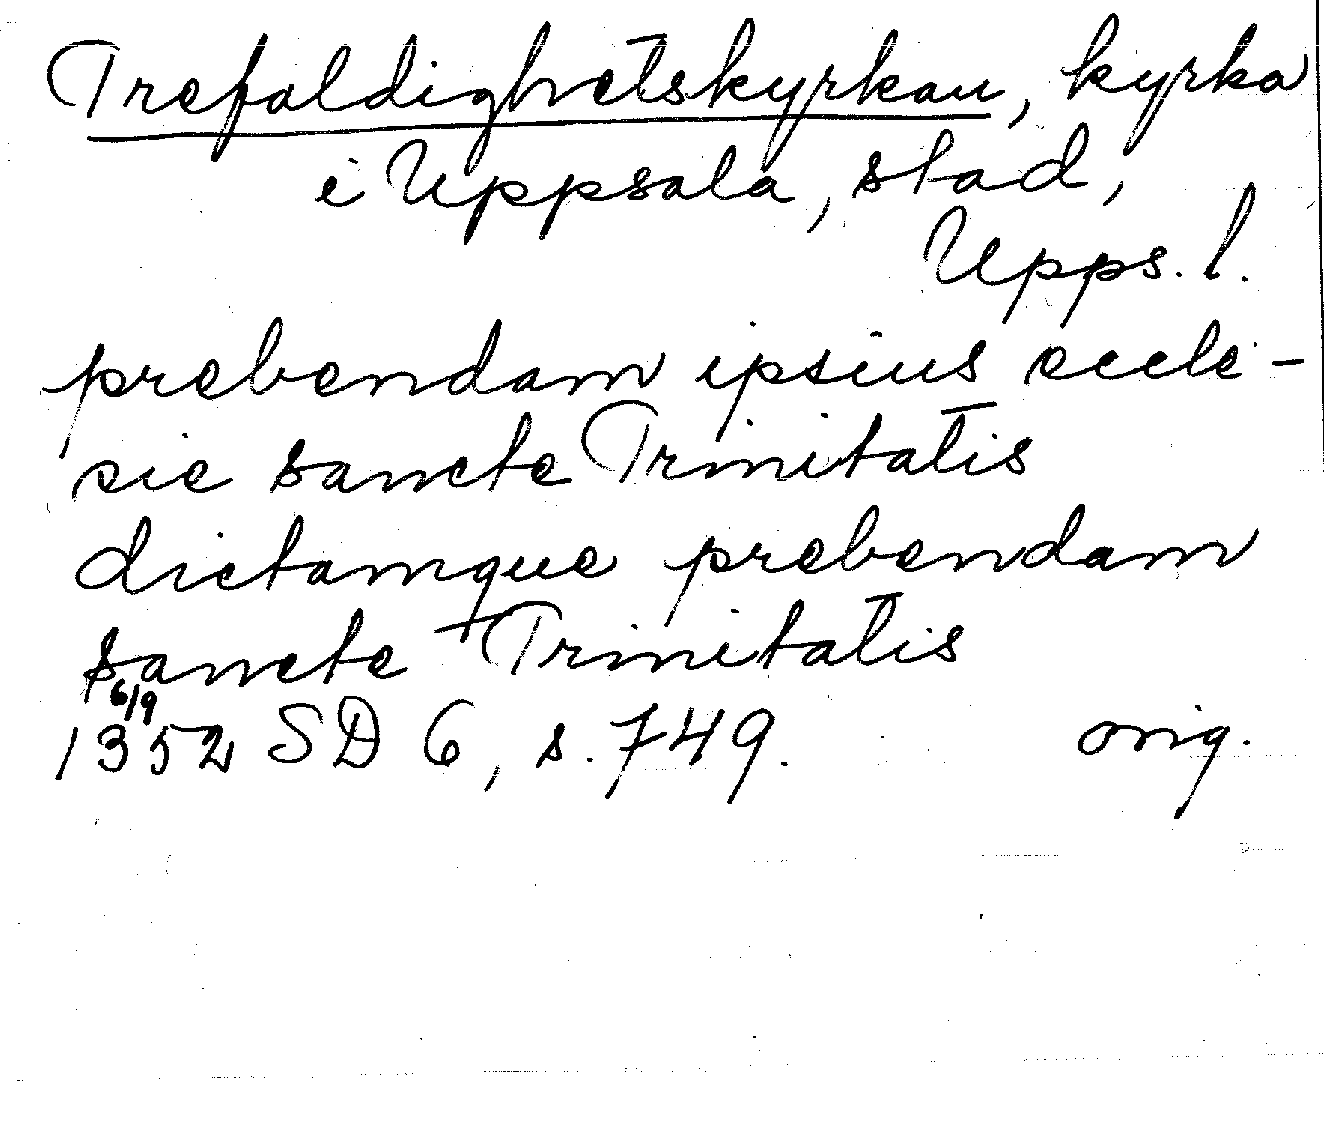 Trefaldighetskyrkan, kyrka
i Uppsala, stad,
Upps. l.
prebendam ipsius eccle-
sie sancte Trinitatis
dictamque prebendam
sancte Trinitatis
6/9
1352 SD 6, s. 749. orig.